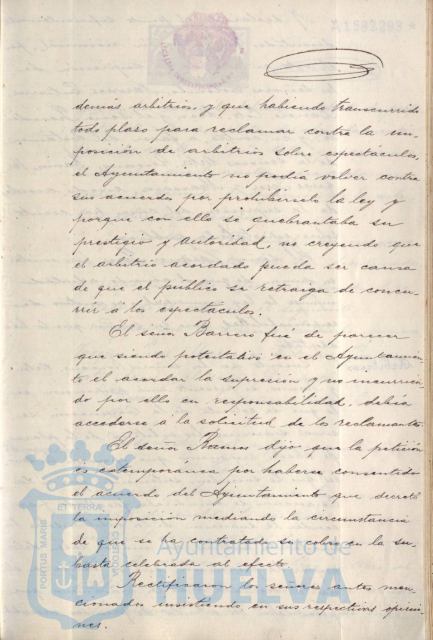 A1582293*
demás arbitrios, y que habiendo transcurrido
todo plazo para reclamar contra la im-
posición de arbitrios sobre espectáculos,
el Ayuntamiento no podía volver contra
sus acuerdos por prohibirselo la ley y
porque con ello se quebrantaba su
prestigio y autoridad, no creyendo que
el arbitrio acordado pueda ser causa
de que el público se retraiga de concu-
rrir á los espectáculos.
El señor Barrero fué de parecer
que siendo potestativo en el Ayuntamien-
to el acordar la supresión y no incurrien-
do por ello en responsabilidad, debía
accederse á la solicitud de los reclamantes.
El señor Ramos dijo que la petición
es extemporánea por haberse consentido
el acuerdo del Ayuntamiento que decretó
la imposición mediando la circunstancia
de que se ha contratado su cobro en la su-
basta celebrada al efecto.
Rectificaron los señores antes men-
cionados insistiendo en sus respectivas opinio-
nes.
PORTUS MARIS ET TERRAE CUSTODIA
Ayuntamiento de
HUELVA